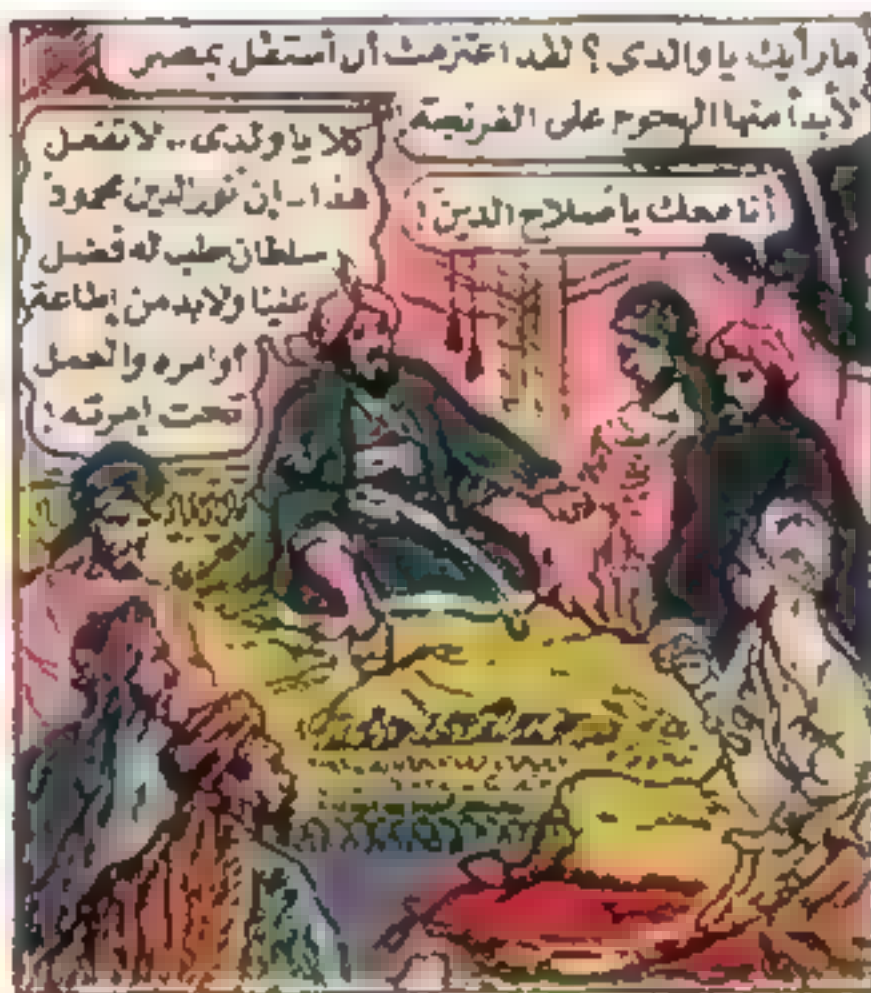 ما رأيك يا والدى ؟ لقد اعتزمت أن أستقل بمصر
لأبدأ منها الهجوم على الفرنجة !
أنا معك يا صلاح الدين !
كلا يا ولدى .. لا تفعل
هذا .. إن نور الدين محمود
سلطان حلب له فضل
علينا ولابد من إطاعة
أوامره والعمل
تحت إمرته !